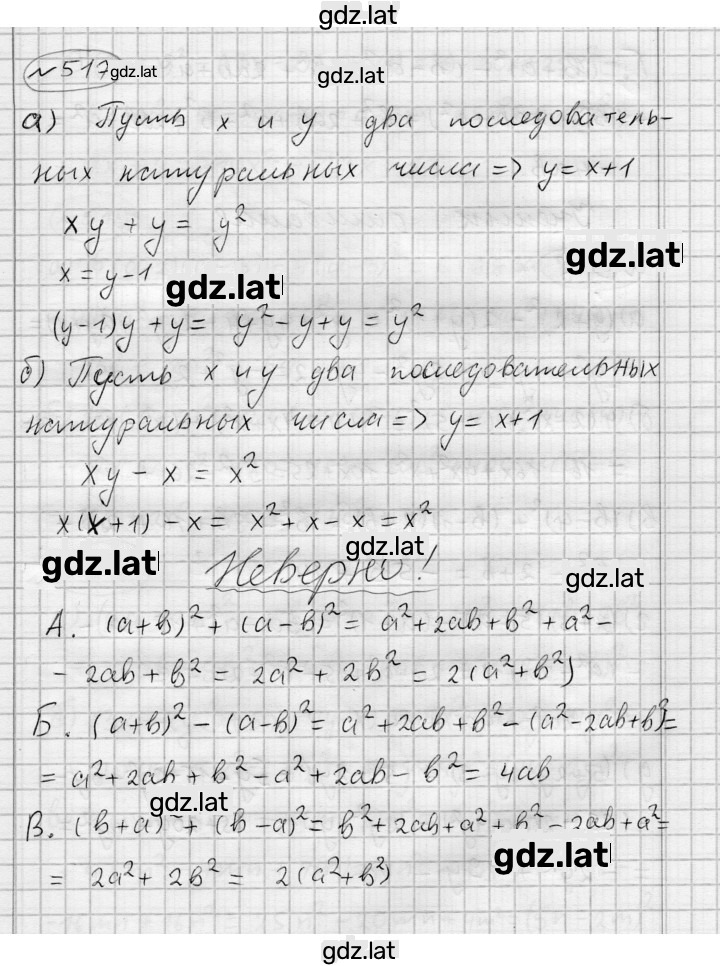 gdz.lat
№517 gdz.lat gdz.lat
а) Пусть x и y два последователь-
ных натуральных числа => y = x+1
xy + y = y²
gdz.lat
x = y-1
gdz.lat
(y-1)y + y = y² - y + y = y²
б) Пусть x и y два последовательных
натуральных числа => y = x+1
xy - x = x²
x(x+1) - x = x² + x - x = x²
gdz.lat
gdz.lat Неверно!
gdz.lat
А. (a+b)² + (a-b)² = a² + 2ab + b² + a² -
- 2ab + b² = 2a² + 2b² = 2(a²+b²)
Б. (a+b)² - (a-b)² = a² + 2ab + b² - (a²-2ab+b²)=
= a² + 2ab + b² - a² + 2ab - b² = 4ab
gdz.lat
В. (b+a)² + (b-a)² = b² + 2ab + a² + b² - 2ab + a² =
gdz.lat
= 2a² + 2b² = 2(a²+b²)
gdz.lat